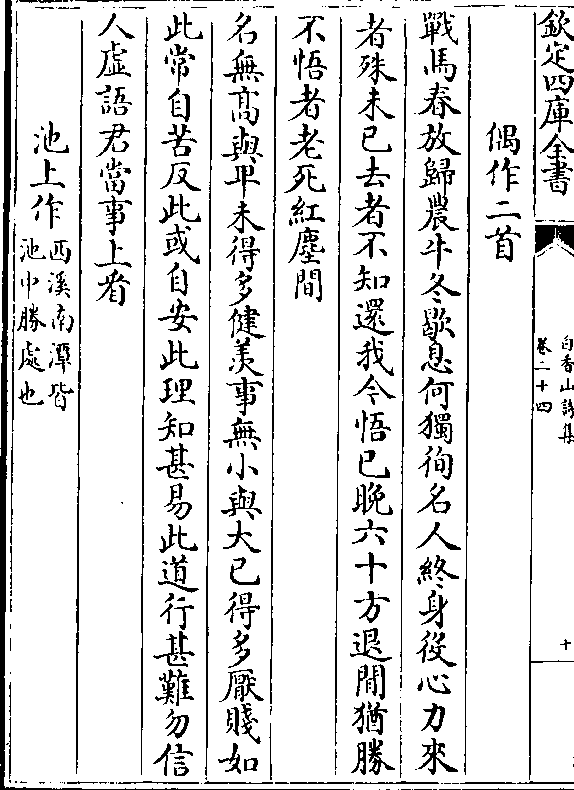 欽定四庫全書
白香山詩集
卷二十四
十
偶作二首
戰馬春放歸農牛冬歇息何獨徇名人終身役心力來
者殊未已去者不知還我今悟已晚六十方退閒猶勝
不悟者老死紅塵間
名無高與卑未得多健羡事無小與大已得多厭賤如
此常自苦反此或自安此理知甚易此道行甚難勿信
人虛語君當事上看
池上作西溪南潭皆
池中勝處也